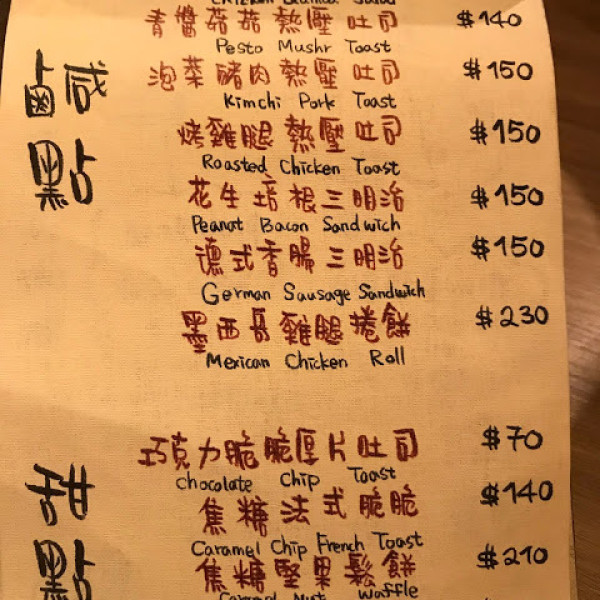 青醬菇菇熱壓吐司 $140
Pesto Mushr Toast
泡菜豬肉熱壓吐司 $150
Kimchi Pork Toast
鹹點
烤雞腿熱壓吐司 $150
Roasted Chicken Toast
花生培根三明治 $150
Peanut Bacon Sandwich
德式香腸三明治 $150
German Sausage Sandwich
墨西哥雞腿捲餅 $230
Mexican Chicken Roll
巧克力脆脆厚片吐司 $70
Chocolate Chip Toast
甜點
焦糖法式脆脆 $140
Caramel Chip French Toast
焦糖堅果鬆餅 $210
Caramel Nut Waffle